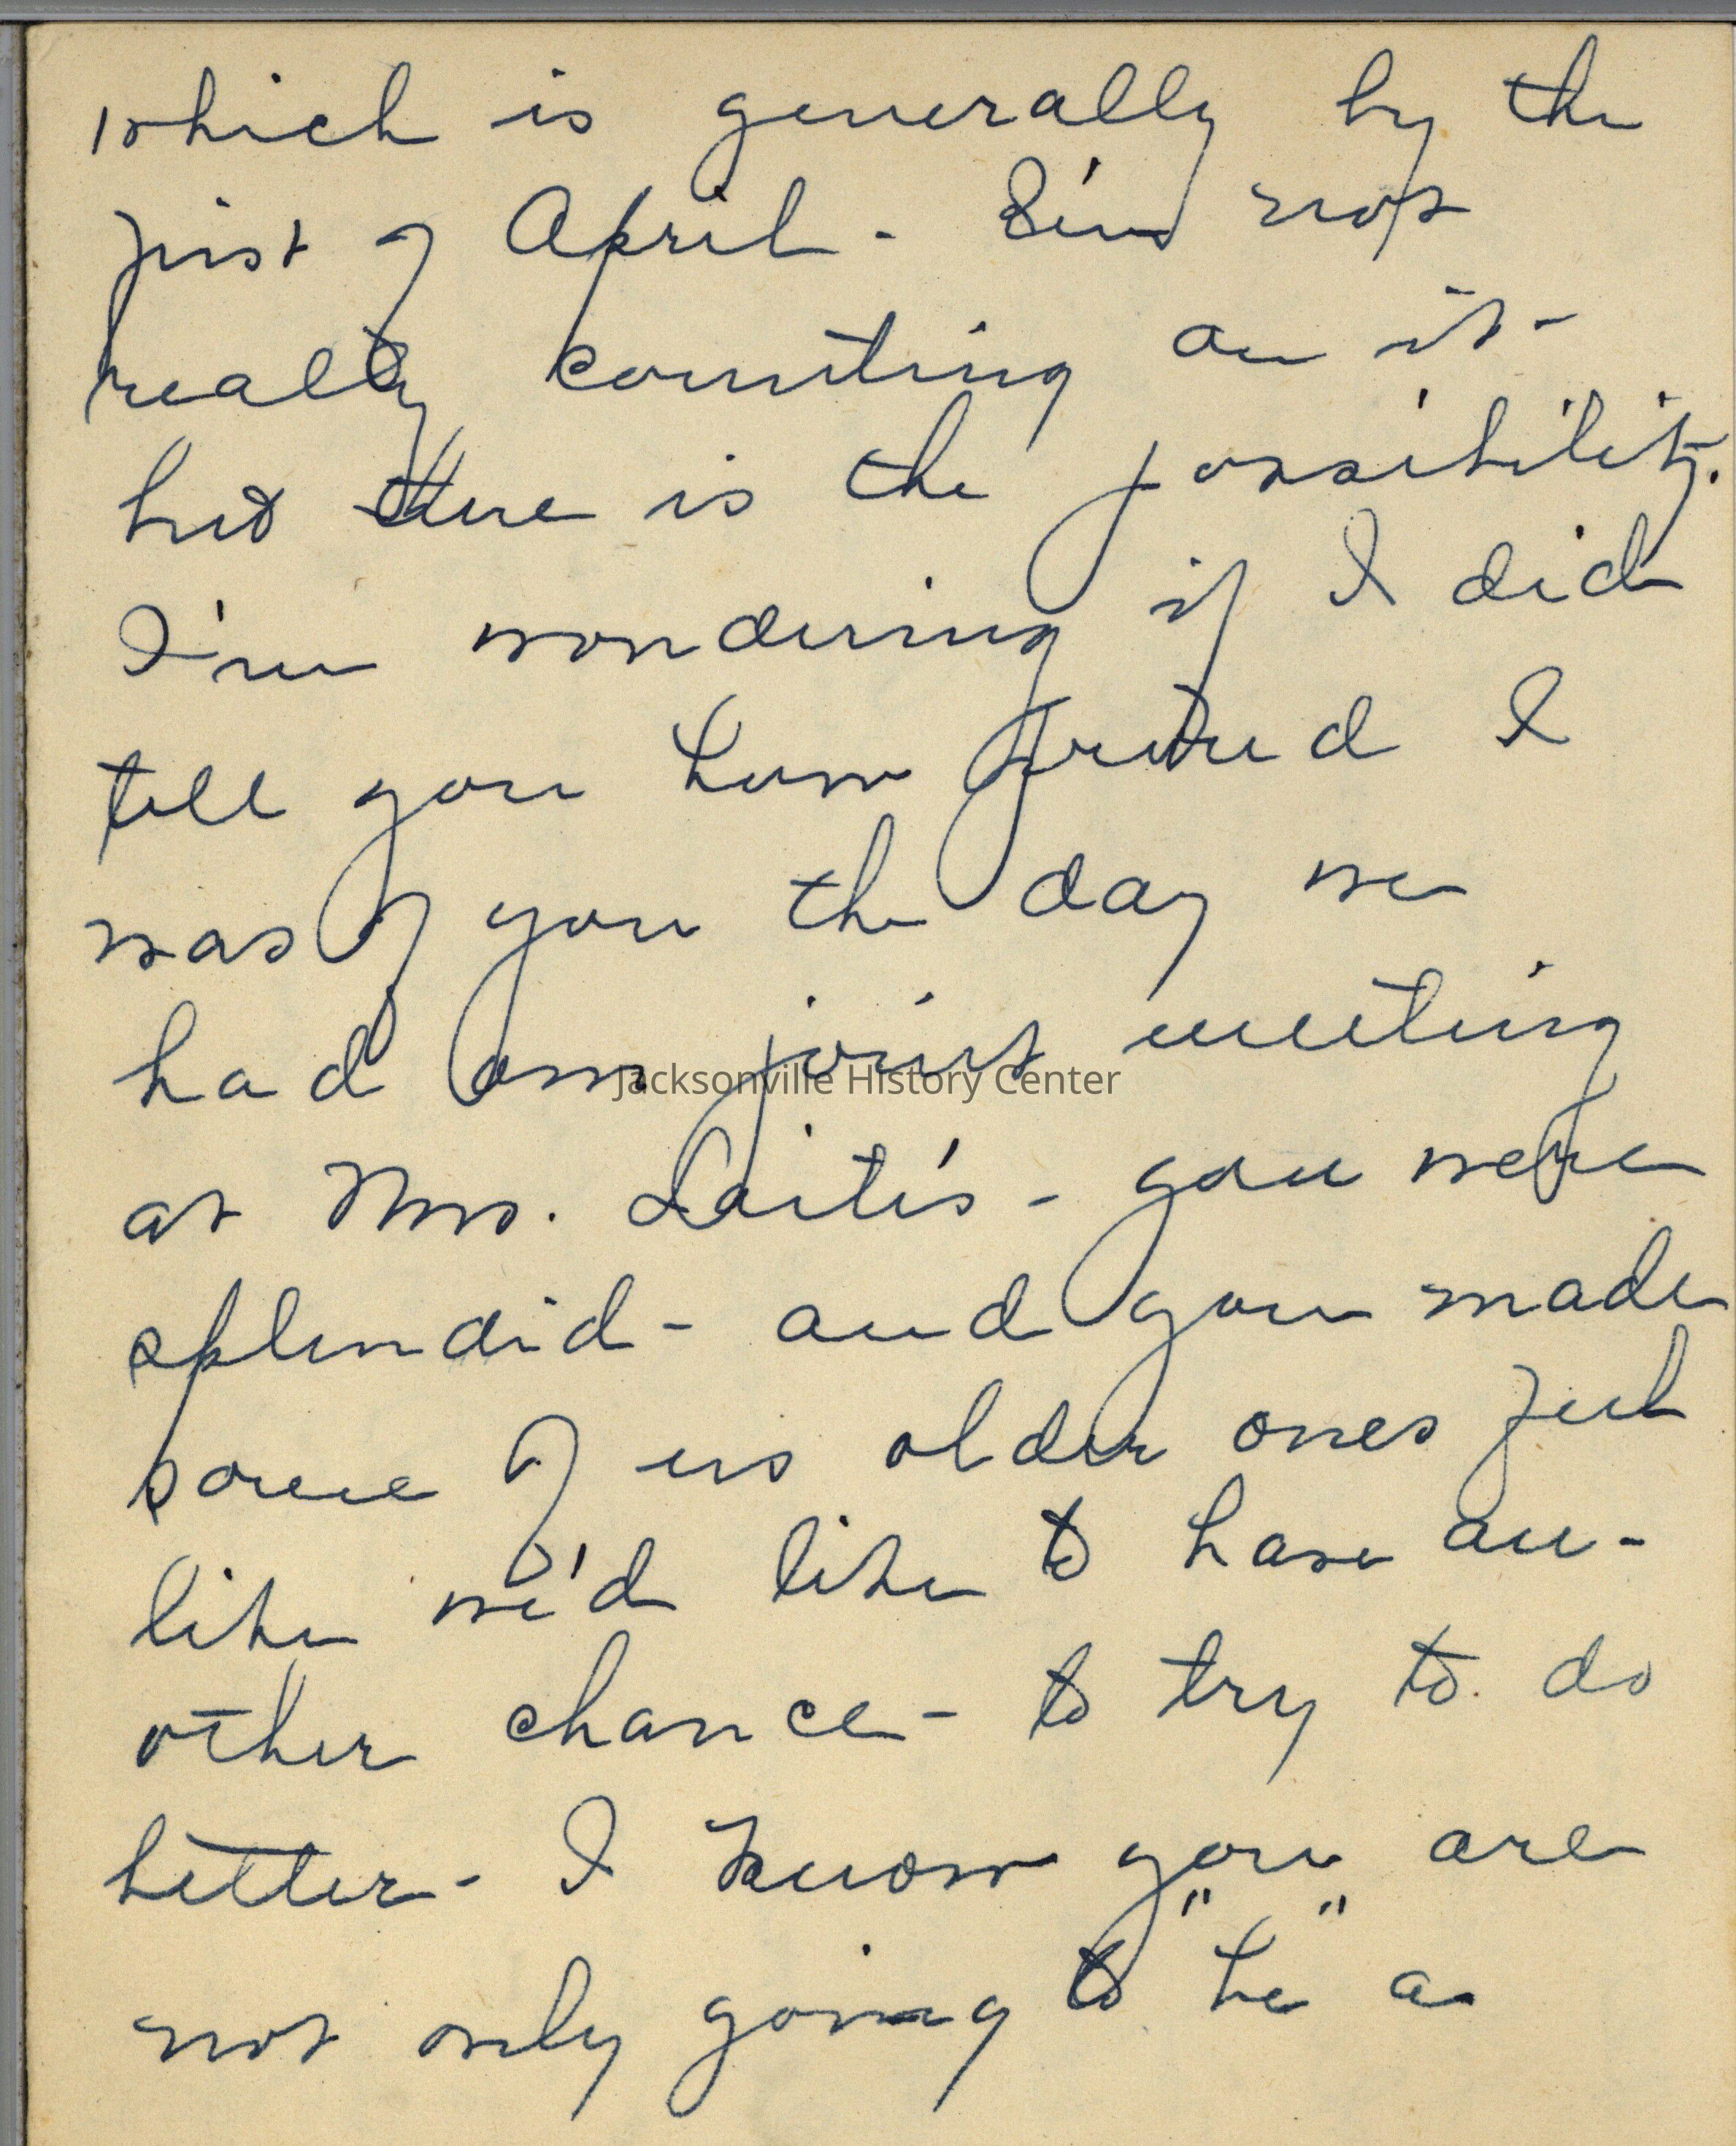 which is generally by the
first of April - I'm not
really counting on it -
but there is the possibility.
I'm wondering if I did
tell you how proud I
was of you the day we
had our joint meeting
Jacksonville History Center
at Mrs. - you were
splendid - and you made
some of us older ones feel
like we'd like to have an-
other chance - to try to do
better - I know you are
not only going to "be" a